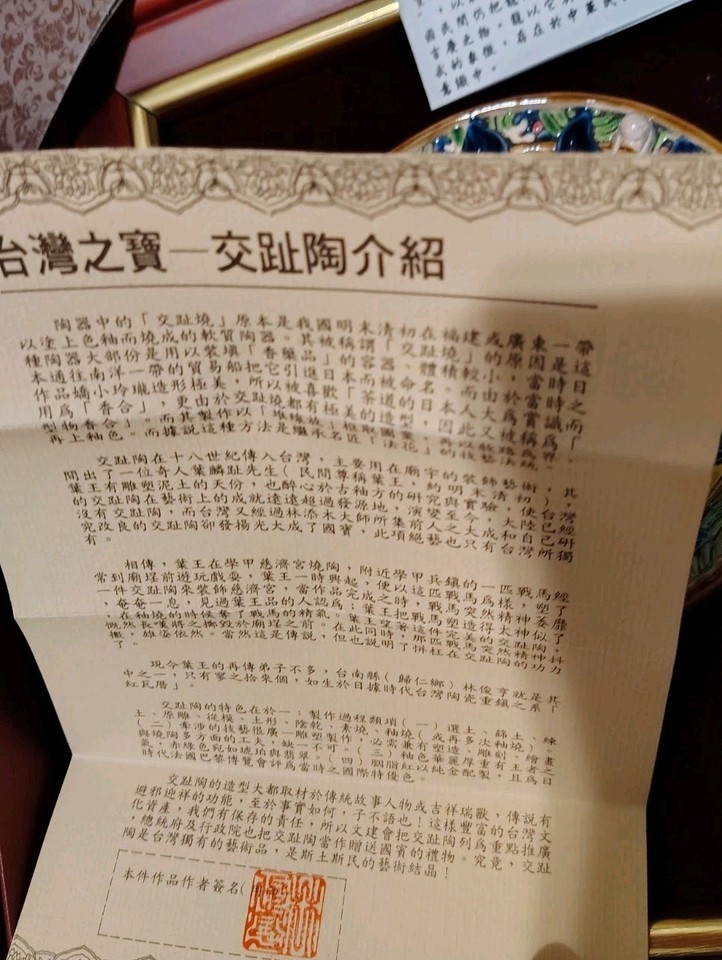 國民間仍把龍
吉慶之物。龍以它
武的象徵，存在於中華民
意識中。
台灣之寶—交趾陶介紹
陶器中的「交趾燒」原本是我國明末清初在福建或廣東一帶
以塗上色釉而燒成的軟質陶器。其被稱謂「交趾燒」的原因是這
種陶器大部份是用以裝填「香藥品」的容器、體積較小，當時由
本通往南洋一帶的貿易船把它引進日本而被命名。而由於當時日
作品嬌小玲瓏造形極美，所以被喜歡「茶道的日本人大為賞識而
用為「香合」，更由於交趾燒都有極美的造型，因此又被稱為「
型物香合」。而其製作以「堆線放」
再上釉色。而據說這種方法是繼承名匠「法花」的技藝法統。
交趾陶在十八世紀傳入台灣，主要用在廟宇的裝飾藝術，其
間出了一位奇人葉麟趾先生（民間尊稱葉王，約明末清初），
葉王有雕塑泥土的天份，也醉心於古釉方的研究與實驗，使台灣
的交趾陶在藝術上的成就遠遠超過發源地，演變至今，大陸已經
沒有交趾陶，而台灣又經過林添木大師所集前人之大成和自己研
究改良的交趾陶卻發揚光大成了國寶，此項絕藝也只有台灣所獨
有。
相傳，葉王在學甲慈濟宮燒陶，附近學甲兵鎮的一匹戰馬經
常到廟埕前遊玩戲耍，葉王一時興起，便以這匹戰馬為樣，塑了
一件交趾陶來裝飾慈濟宮，當作品完成之時，戰馬突然精神萎靡
，奄奄一息，見過葉王品的人認為；葉王把戰馬塑造得太神似了
，在釉燒的時候奪了戰馬的精氣。葉王望著這件完美的交趾陶，
慨然長嘆將之擲毀於廟埕之前。在此同時，那匹戰馬突然精神抖
擻，雄姿依然。當然這是傳說，但也說明了葉王在交趾陶的功力
了。
現今葉王的再傳弟子不多，台南縣（歸仁鄉）林俊亨就是其
中之一，只有寥之拾來個，如生於日據時代台灣陶瓷重鎮之系「
紅瓦厝」。
交趾陶的特色在於一；製作過程煩瑣（一）選土、篩土、練
土、原雕、從模、土形、陰乾、素燒、釉燒（或再多次釉燒）。
（二）牽涉的技藝很廣—雕塑製作，必需兼有塑造、雕刻、繪畫
與燒陶多方面的工夫，缺一不可。（三）釉色華麗厚重有王者之
氣，赤綠色宛如琥珀與翡翠。（四）胭脂紅以純金配製，且為日
時代法國巴黎博覽會評為當時之國際特優色。
交趾陶的造型大都取材於傳統故事人物或吉祥瑞獸，傳說有
避邪迎祥的功能，至於事實如何，子不語也！這樣豐富的台灣文
化資產，我們有保存的責任，所以文建會把交趾陶列為重點推廣
，總統府及行政院也把交趾陶當作贈送國賓的禮物。究竟，交趾
陶是台灣獨有的藝術品，是斯土斯民的藝術結晶！
本件作品作者簽名（